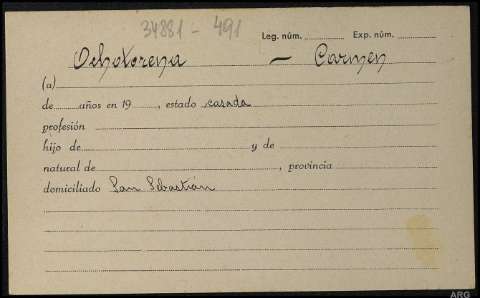 34881 - 491
Leg. núm. Exp. núm.
Ochotorena — Carmen
(a)
de años en 19 , estado casada
profesión
hijo de y de
natural de , provincia
domiciliado San Sebastián
ARG